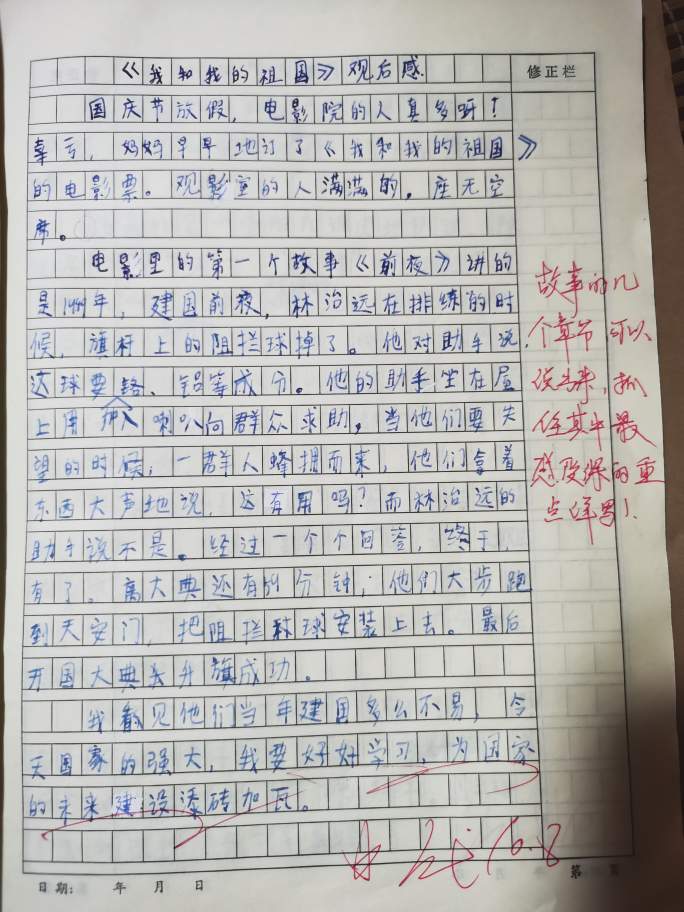 《我和我的祖国》观后感
修正栏
国庆节放假，电影院的人真多呀！
幸亏，妈妈早早地订了《我和我的祖国》
的电影票。观影室的人满满的。座无空
席。
电影里的第一个故事《前夜》讲的
是1949年，建国前夜，林治远在排练的时
候，旗杆上的阻拦球掉了。他对助手说
这球要铬、铝等成分。他的助手坐在屋
上用喇叭向群众求助，当他们要失
望的时候；一群人蜂拥而来，他们拿着
东西大声地说，这有用吗？而林治远的
助手说不是。经过一个个回答，终于，
有了。离大典还有 分钟；他们大步跑
到天安门，把阻拦 球安装上去。最后
开国大典 升旗成功。
我看见他们当年建国多么不易，今
天国家的强大，我要好好学习，为国家
的未来建设添砖加瓦。
故事的几
个章节可以
说出来，抓
住其中最
感受深的重
点详写！
10.8
日期： 年 月 日
第 页